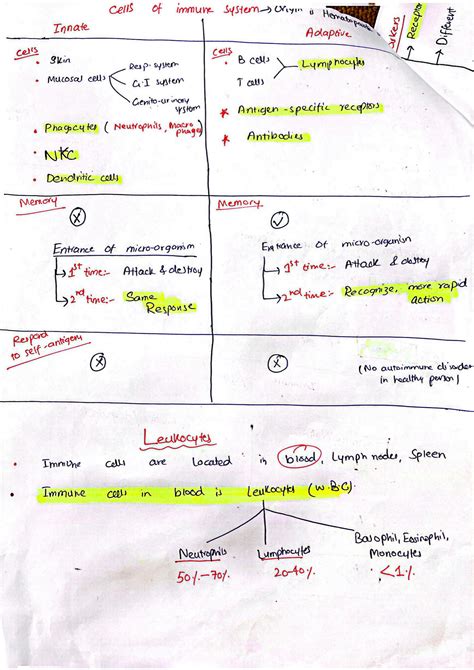 Cells of immune system → Origin is
Innate
Adaptive
Receptor
Different
Cells
• Skin
• Mucosal cells
Resp-system
G.I system
Genito-urinary system
• Phagocytes (Neutrophils, Macrophages)
• NKC
• Dendritic cells
Cells
• B cells
T cells
Lymphocytes
* Antigen-specific receptors
* Antibodies
Memory
X
Entrance of micro-organism
→ 1st time:- Attack & destroy
→ 2nd time:- Same
Response
Memory
✓
Entrance of micro-organism
→ 1st time:- Attack & destroy
→ 2nd time:- Recognize, more rapid
action
Respond
to self-antigen
X
X
(No autoimmune disorder
in healthy person)
Leukocytes
• Immune cells are located in blood, lymph nodes, Spleen
• Immune cells in blood is leukocytes (W.B.C)
Neutrophils
50%-70%
Lymphocytes
20-40%
Basophil, Eosinophil,
Monocytes
<1%